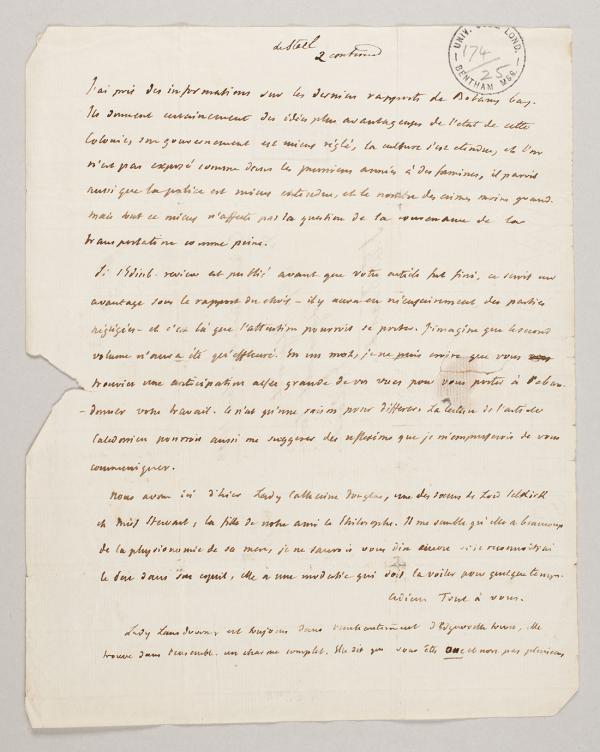 de Stael
2 continued
UNIV. COLL. LOND.
174/25
BENTHAM MSS.
J'ai pris des informations sur les derniers rapports de Botany bay.
Ils donnent certainement des idées plus avantageuses de l'etat de cette
Colonie, son gouvernement est mieux réglé, la culture s'est etendue, et l'on
n'est pas exposé comme dans les premiers années à des famines, il paroit
aussi que la justice est mieux entendue, et le nombre des crimes moins grand.
mais tout ce mieux n'affecte pas la question de la convenance de la
transportation comme peine.
Si l'Edinb. review est publié avant que votre article fut fini, ce seroit un
avantage sous le rapport du choix – il y aura eu nécessairement des parties
négligées – et c'est là que l'attention pourroit se porter. J'imagine que le second
volume n'aura été qu'effleuré. En un mot, je ne puis croire que vous
trouviez une anticipation assez grande de vos vues pour vous porter à l'aban-
-donner votre travail. Ce n'est qu'une raison pour differer. La lecture de l'article
Caledonien pourroit aussi me suggerer des reflexions que je m'empresserois de vous
communiquer.
Nous avons ici d'hier Lady Catherine Douglas, une des sœurs de Lord Selkirk
et Miss Stewart, la fille de notre ami le Philosophe. Il me semble qu'elle a beaucoup
de la physionomie de sa mere, je ne saurois vous dire encore si je reconnoitrai
le pere dans son esprit, elle a une modestie qui doit la voiler pour quelque temps.
Adieu Tout à vous.
Lady Lansdowne est toujours dans l'enchantement d'Edgeworth town, elle
trouve dans l'ensemble un charme complet. Elle dit que vous êtes one et non pas plusieurs